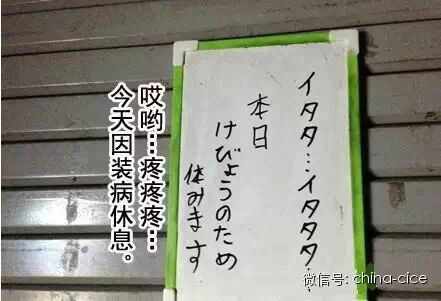 イタタ…イタタタ…
本日
けびょうのため
休みます
哎哟…疼疼疼…
今天因装病休息。
微信号: china-cice